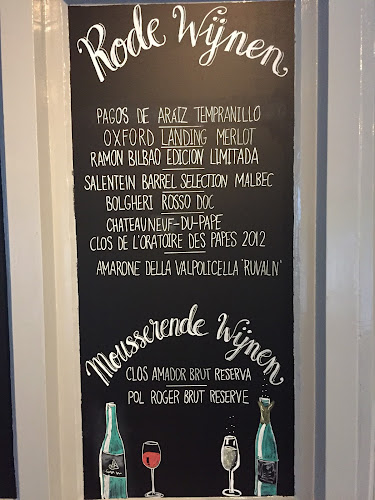 Rode Wijnen
PAGOS DE ARÁIZ TEMPRANILLO
OXFORD LANDING MERLOT
RAMON BILBAO EDICION LIMITADA
SALENTEIN BARREL SELECTION MALBEC
BOLGHERI ROSSO DOC
CHATEAUNEUF-DU-PAPE
CLOS DE L'ORATOIRE DES PAPES 2012
AMARONE DELLA VALPOLICELLA 'RUVALN'
Mousserende Wijnen
CLOS AMADOR BRUT RESERVA
POL ROGER BRUT RESERVE